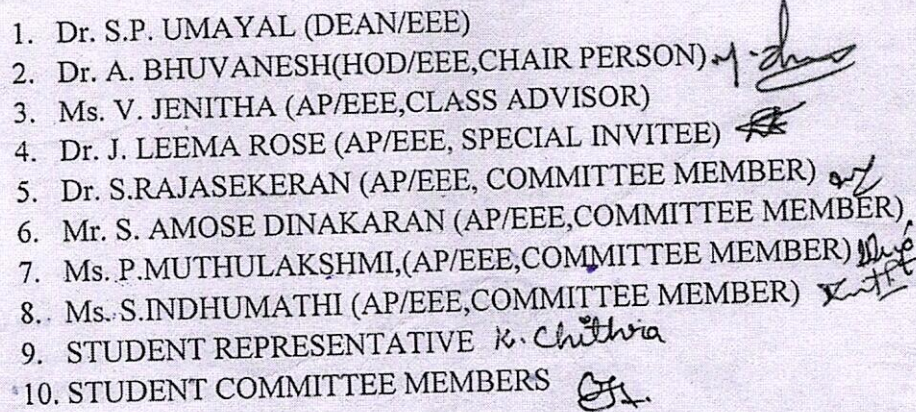 1. Dr. S.P. UMAYAL (DEAN/EEE)
2. Dr. A. BHUVANESH(HOD/EEE,CHAIR PERSON)
3. Ms. V. JENITHA (AP/EEE,CLASS ADVISOR)
4. Dr. J. LEEMA ROSE (AP/EEE, SPECIAL INVITEE)
5. Dr. S.RAJASEKERAN (AP/EEE, COMMITTEE MEMBER)
6. Mr. S. AMOSE DINAKARAN (AP/EEE,COMMITTEE MEMBER)
7. Ms. P.MUTHULAKSHMI,(AP/EEE,COMMITTEE MEMBER)
8. Ms. S.INDHUMATHI (AP/EEE,COMMITTEE MEMBER)
9. STUDENT REPRESENTATIVE K. Chithra
10. STUDENT COMMITTEE MEMBERS